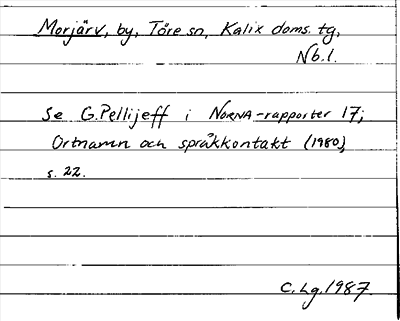 Morjärv, by, Töre sn, Kalix doms. tg,
Nb.l.
Se G.Pellijeff i NORNA-rapporter 17;
Ortnamn och språkkontakt (1980),
s. 22.
C.Lg.1987.